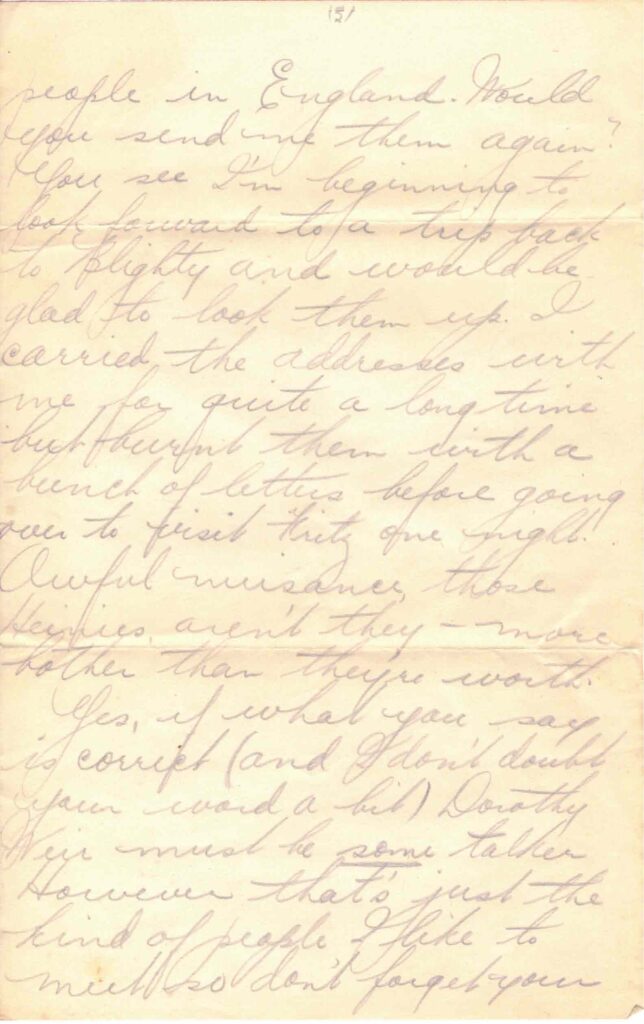 (5)
people in England. Would
you send me them again?
You see I'm beginning to
look forward to a trip back
to Blighty and would be
glad to look them up. I
carried the addresses with
me for quite a long time
but burnt them with a
bunch of letters before going
over to visit Fritz one night.
Awful nuisance, those
Heinies, aren't they – more
bother than they're worth.
Yes, if what you say
is correct (and I don't doubt
your word a bit) Dorothy
Weir must be some talker
However that's just the
kind of people I like to
meet so don't forget your